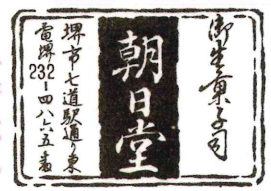 御生菓子司
朝日堂
堺市七道駅通り東
電堺232-四八六五番